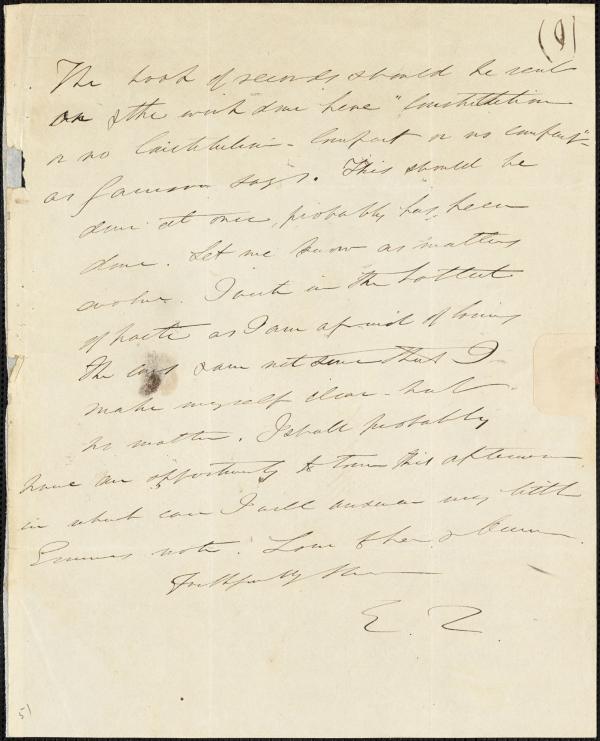 (9)
The book of records should be sent
on & the work done here "Constitution
or no Constitution - Compact or no compact" -
as Garrison says. This should be
done at once, probably has been
done. Let me know as matters
evolve. I write in the hottest
of haste as I am afraid of losing
the cars & am not sure that I
make myself clear - but
no matter. I shall probably
have an opportunity to town this afternoon
in which case I will answer my little
Emma's note. Love to her &
Faithfully
E. Q.
51